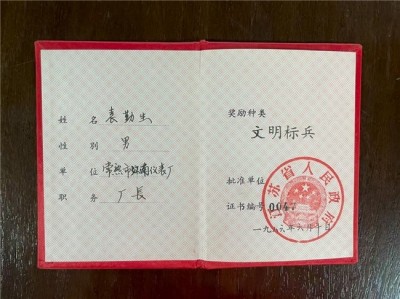 姓 名 袁勤生
性 别 男
单 位 常熟市仪表厂
职 务 厂長
奖励种类
文明标兵
批准单位
江苏省人民政府
证书编号 004
一九八六年